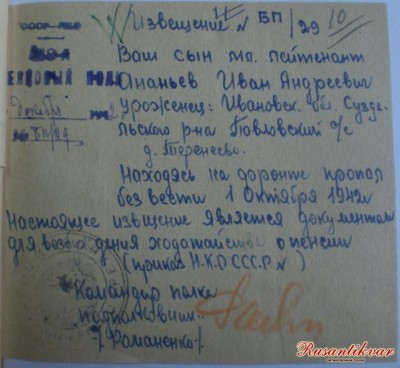 СССР-НКО
Извещение № БП/29
10
Ваш сын мл. лейтенант
Ананьев Иван Андреевич
Уроженец: Ивановск. обл. Сузда-
льского р-на Повловский с/с
д. Теренеево.
Находясь на фронте пропал
без вести 1 Октября 1942г
Настоящее извещение является документом
для возбуждения ходотайства о пенсии
(приказ Н.К.О СССР №)
Командир полка
подполковник
/Романенко/.
Rusantikvar